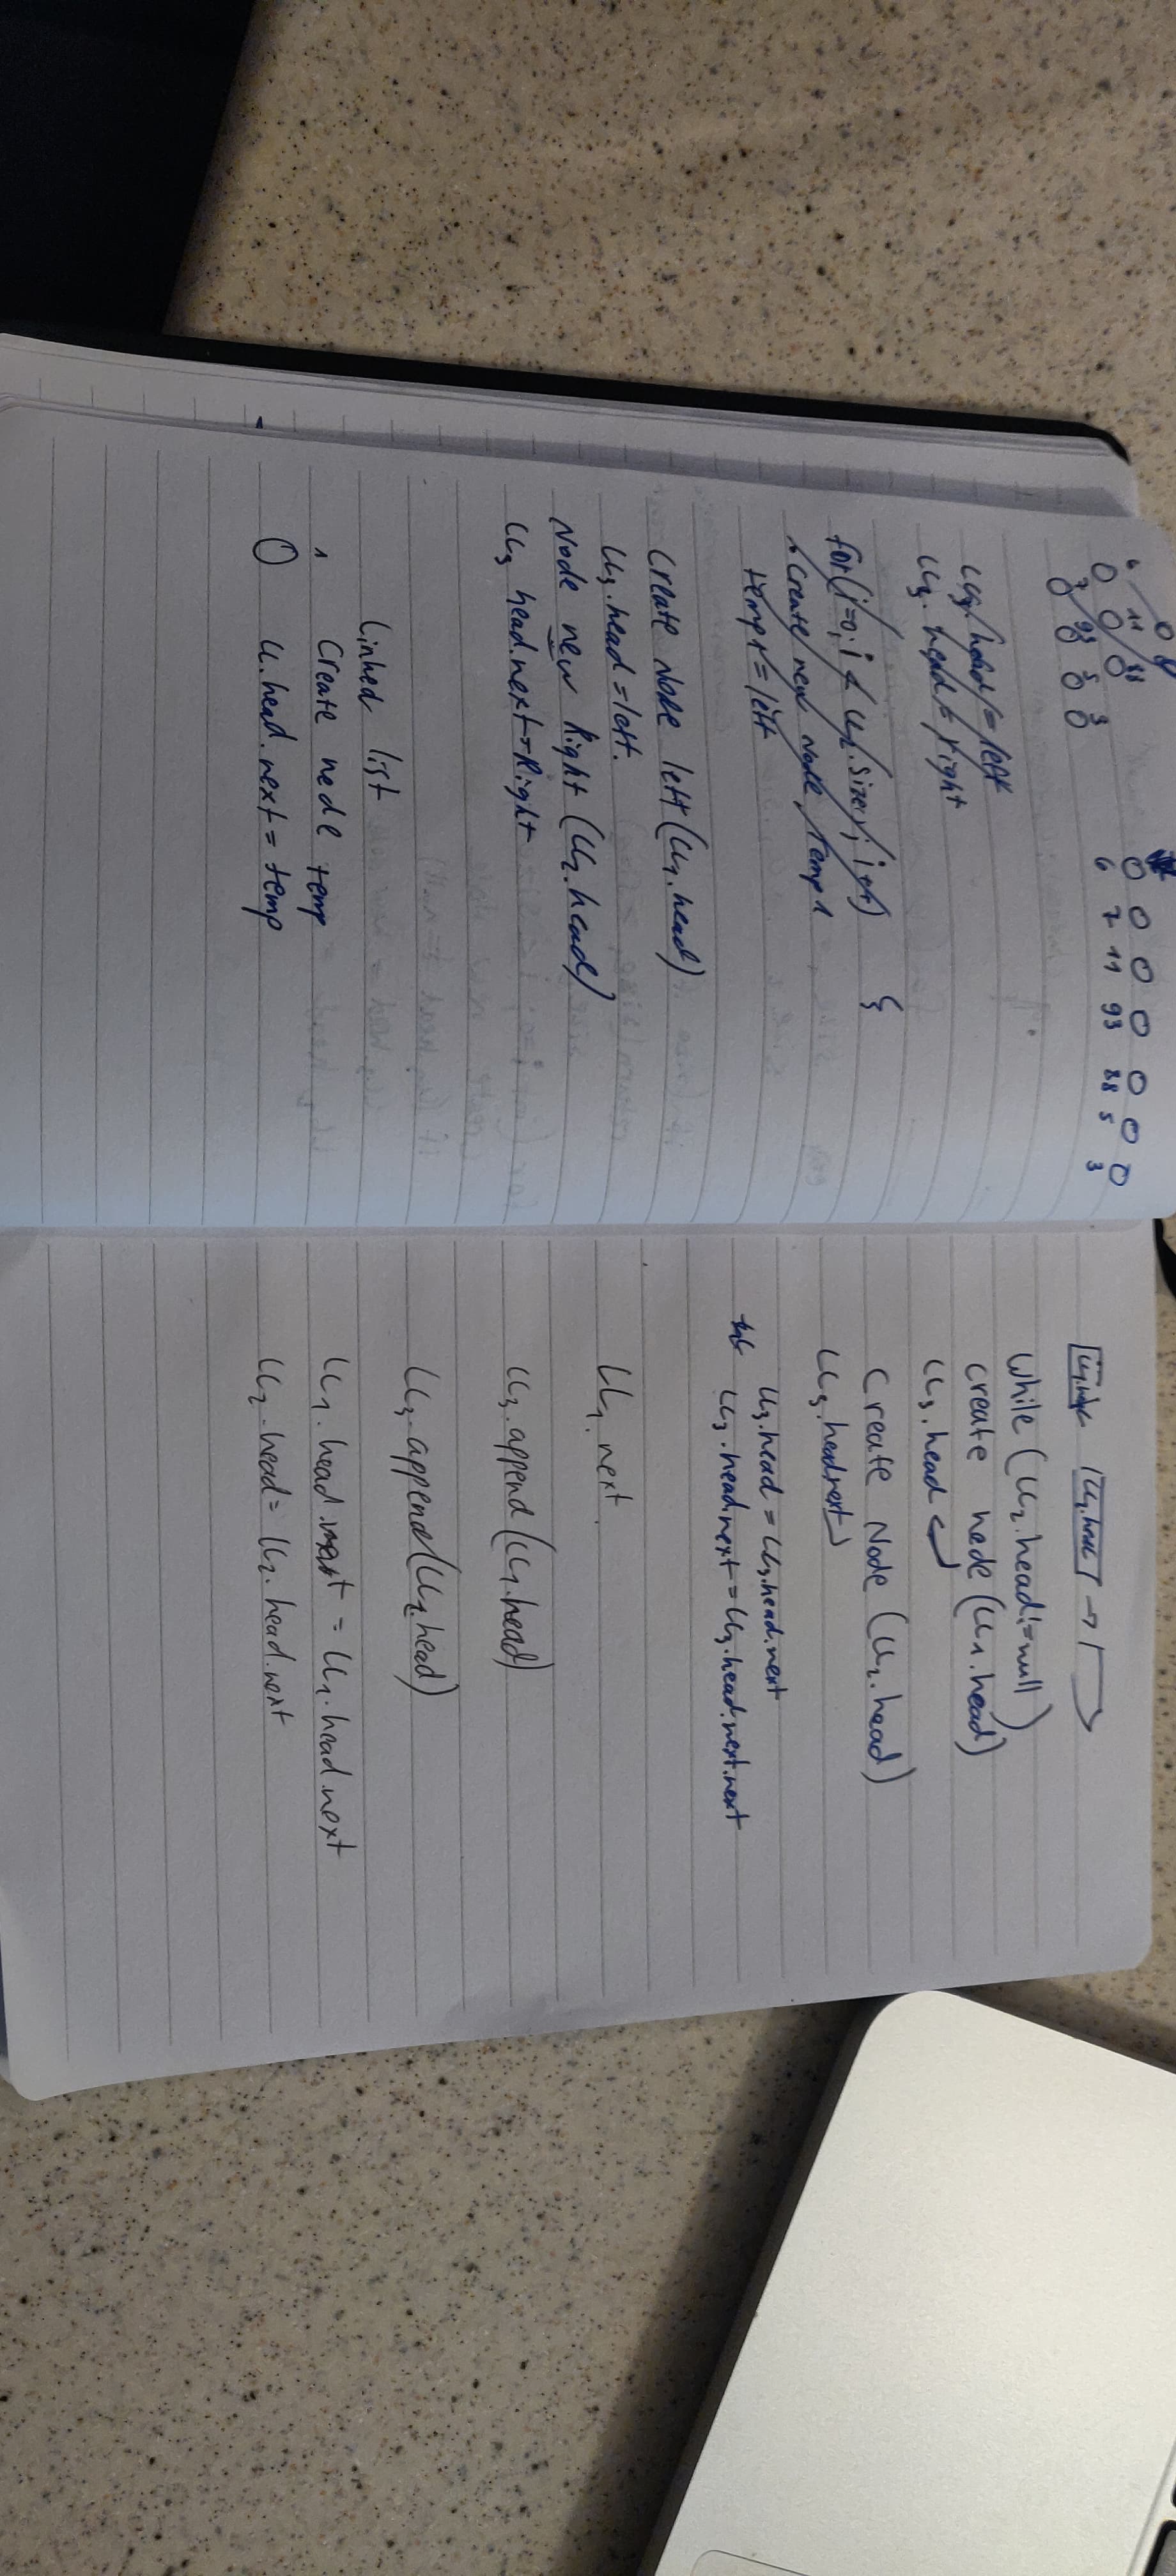 6 11 88
7 93 5 3
6 7 11 93 88 5 3
LL3.head = left
LL3.head = right
for(i=0; i < LL2.size; i++) {
create new node temp1
temp1 = left
Create Node left (LL1.head)
LL3.head = left.
Node new Right (LL2.head)
LL3 head.next = Right
Linked list
1 Create node temp
0 LL.head.next = temp
LL2.head →
while (LL2.head != null)
create node (LL1.head)
LL3.head
Create Node (LL2.head)
LL3.head.next
LL3.head = LL3.head.next
LL3.head.next = LL3.head.next.next
LL1.next
LL3.append (LL1.head)
LL3.append (LL2.head)
LL1.head = LL1.head.next
LL2.head = LL2.head.next